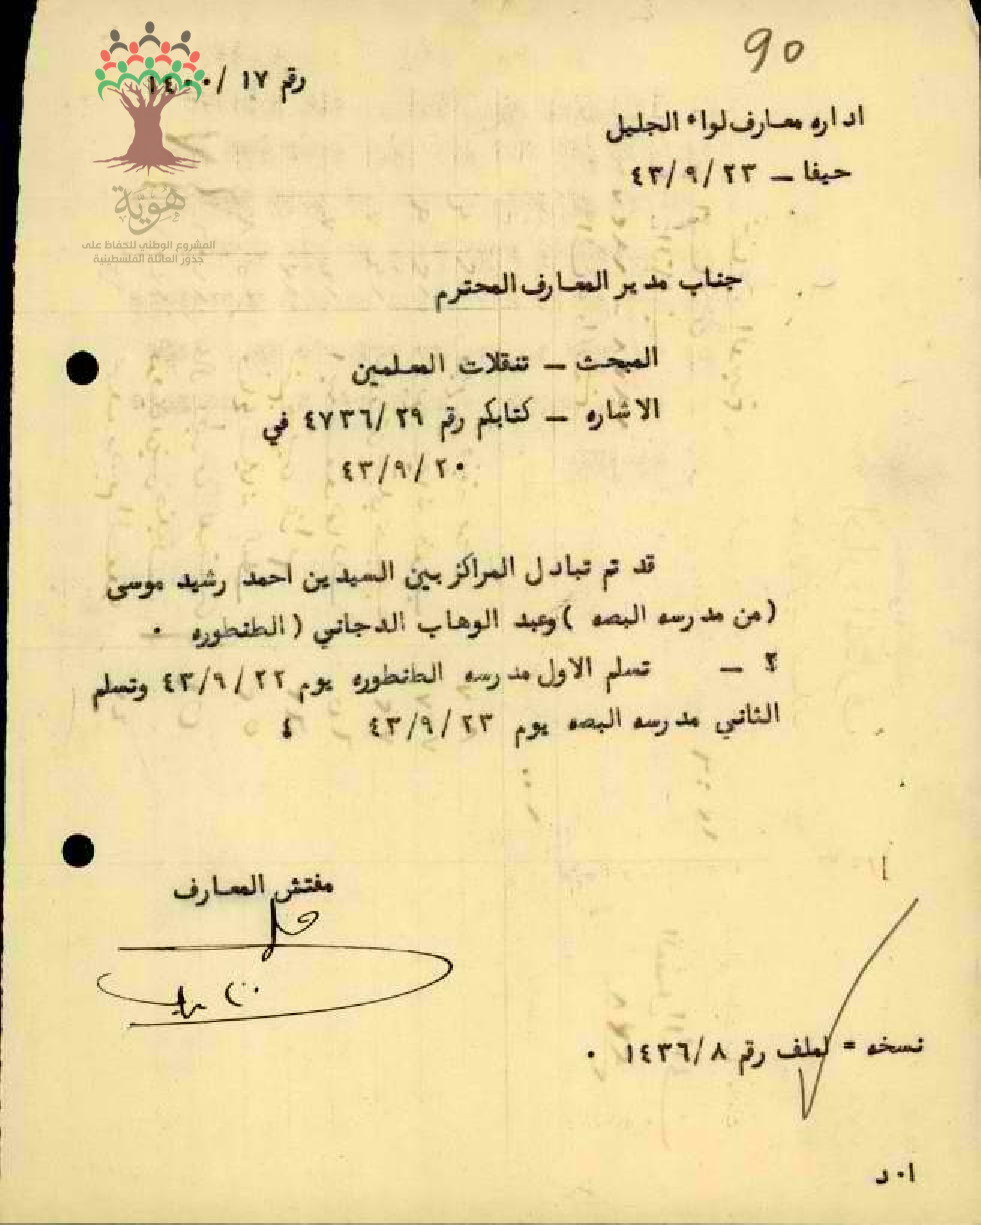 90
رقم ١٧ /١٤٠٠
اداره معارف لواء الجليل
حيفا ــ ٤٣/٩/٢٣
هُويَّة
المشروع الوطني للحفاظ على
جذور العائلة الفلسطينية
جناب مدير المعارف المحترم
المبحث ــ تنقلات المعلمين
الاشاره ــ كتابكم رقم ٤٧٣٦/٢٩ في
٤٣/٩/٢٠
قد تم تبادل المراكز بين السيدين احمد رشيد موسى
(من مدرسه البصه )وعبد الوهاب الدجاني (الطنطوره ٠
٢ ــ تسلم الاول مدرسه الطنطوره يوم ٤٣/٩/٢٢ وتسلم
الثاني مدرسه البصه يوم ٤٣/٩/٢٣ ٤
مفتش المعارف
نسخه = لملف رقم ١٤٣٦/٨ ٠
ا٠د